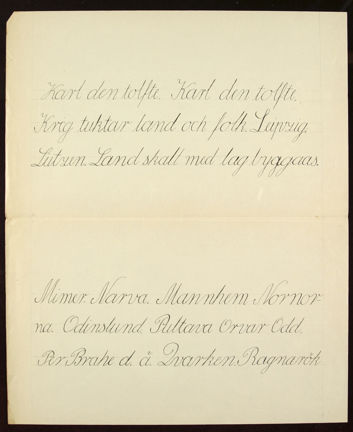 Karl den tolfte. Karl den tolfte.
Krig tuktar land och folk. Leipzig.
Lützen. Land skall med lag byggaas.
Mimer. Narva. Mannhem. Nornor-
na. Odinslund. Pultava. Orvar Odd.
Per Brahe d. ä. Qvarken. Ragnarök.